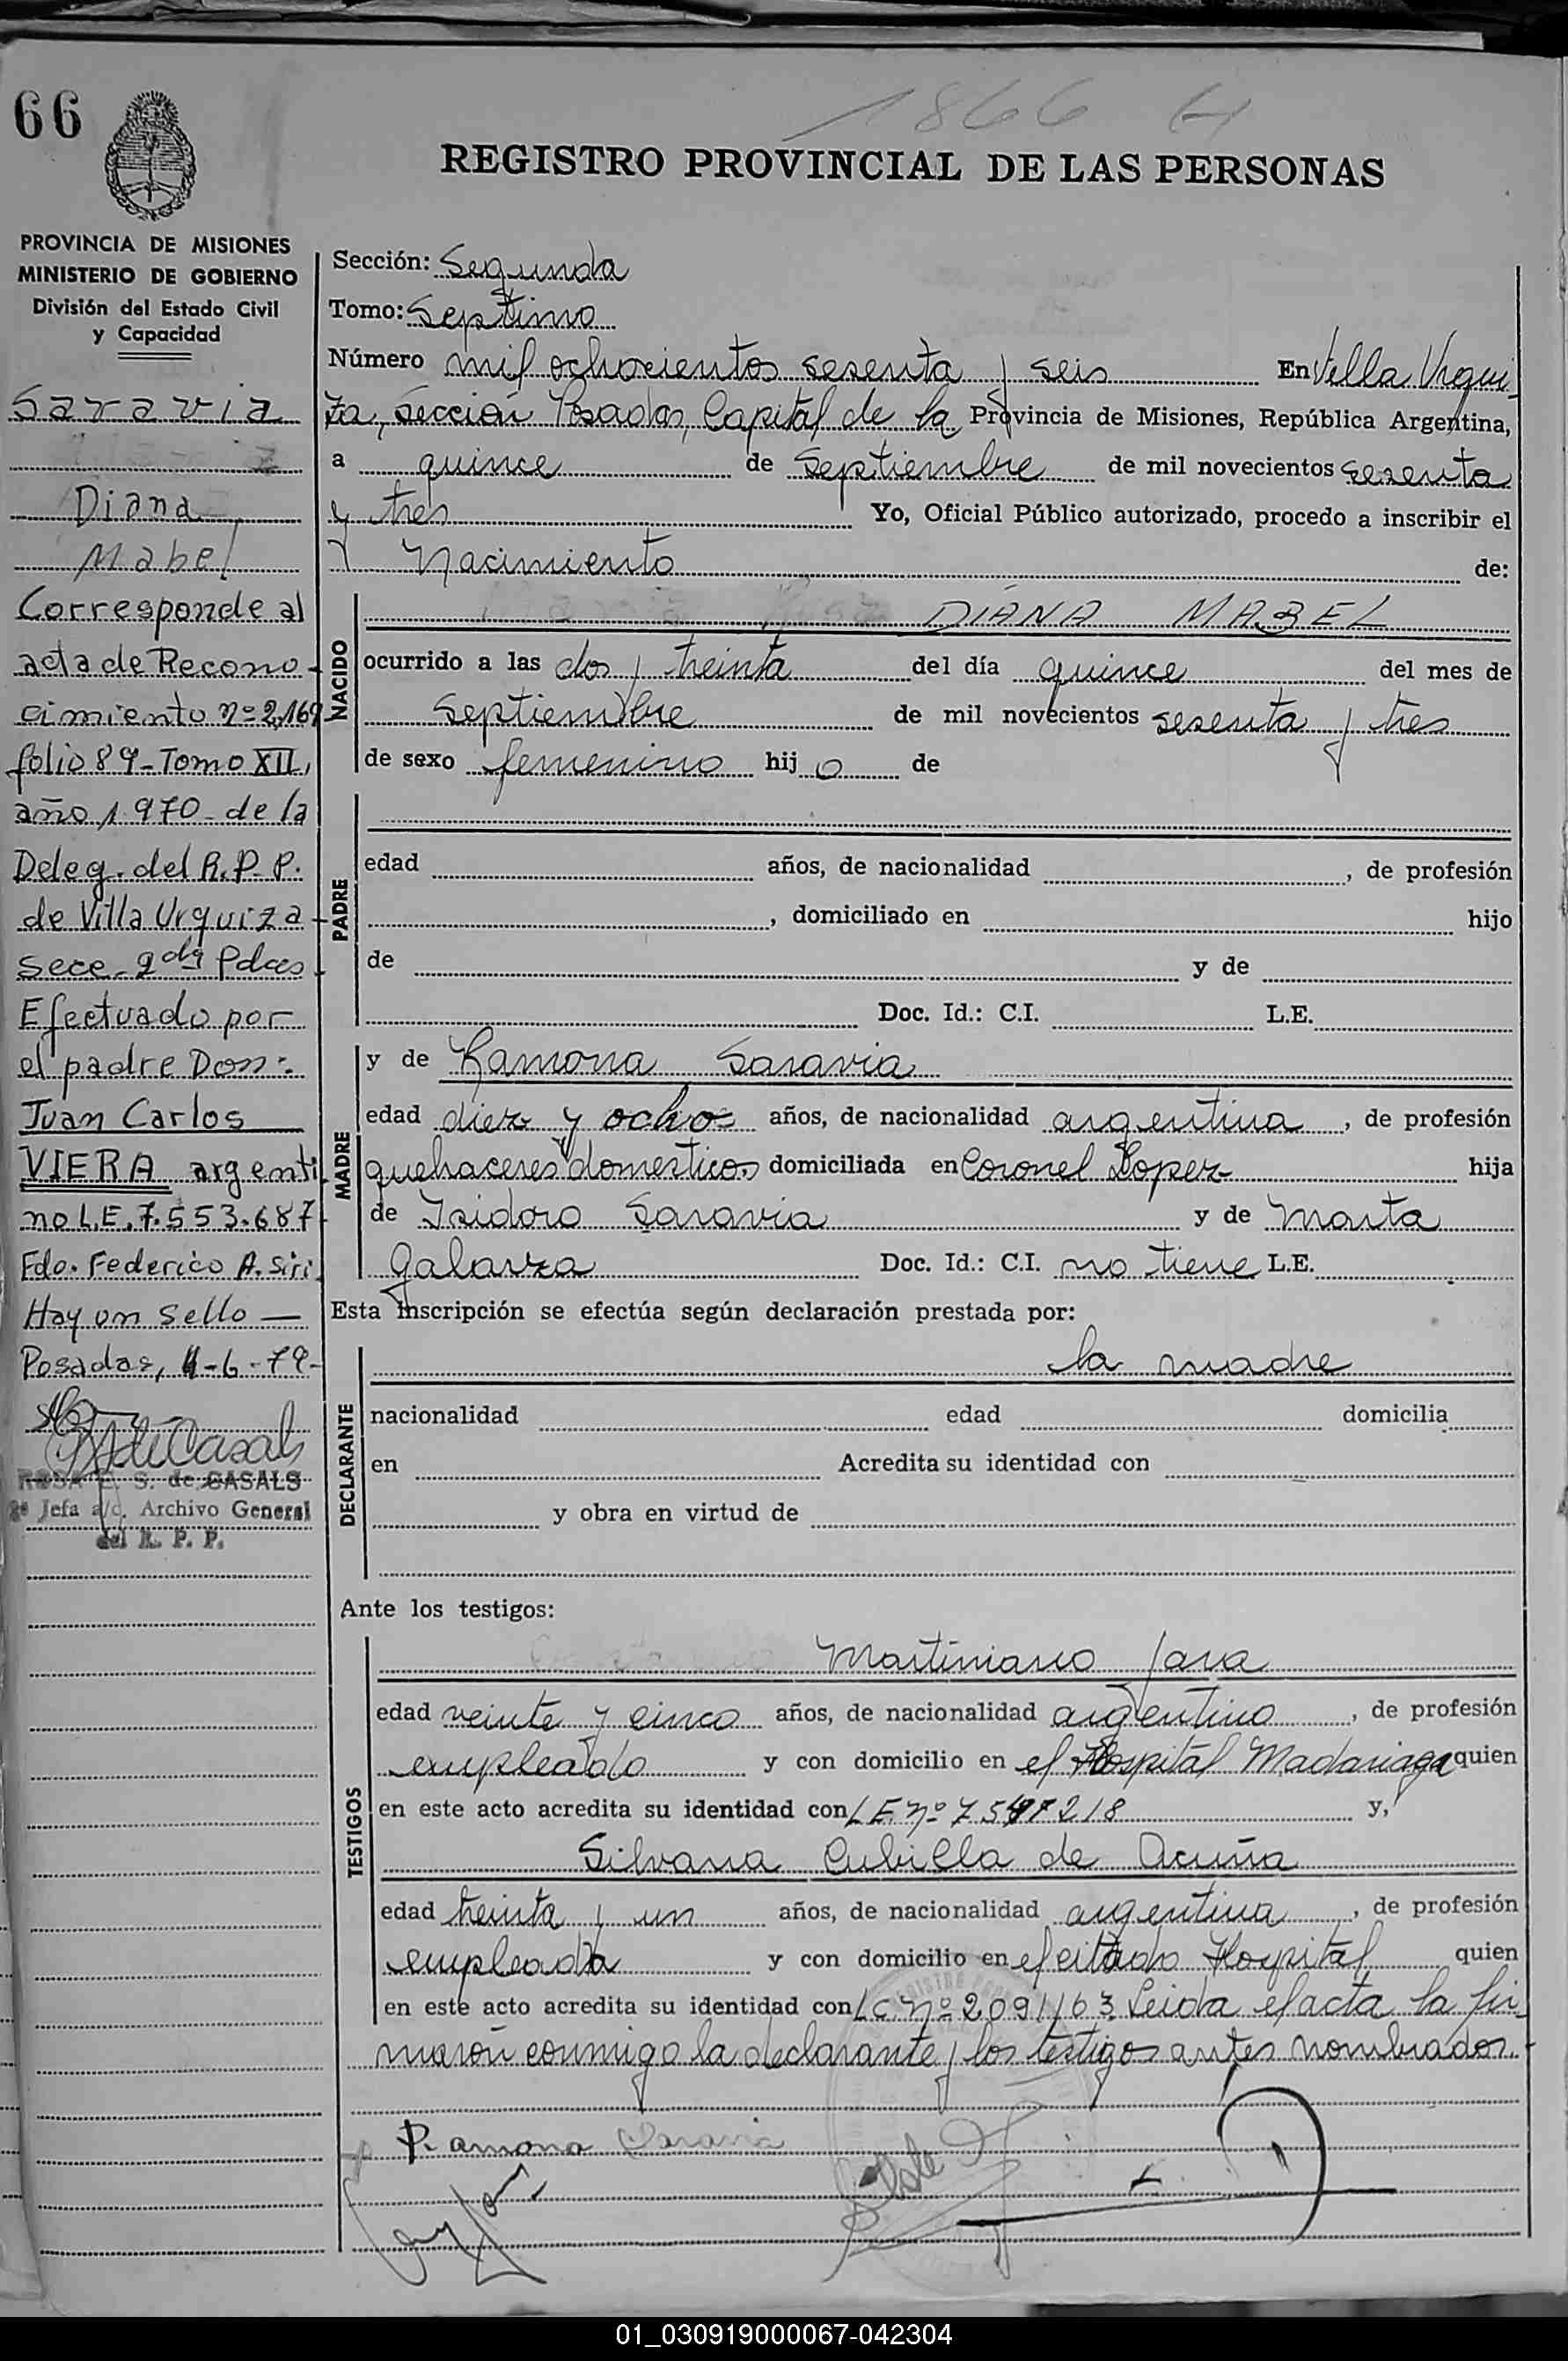 66
1866 H
REGISTRO PROVINCIAL DE LAS PERSONAS
PROVINCIA DE MISIONES
MINISTERIO DE GOBIERNO
División del Estado Civil
y Capacidad
Saravia
Diana
Mabel
Corresponde al
acta de Recono-
cimiento nº 2,169
folio 89-Tomo XII,
año 1.970-de la
Deleg. del R.P.P.
de Villa Urquiza-
Secc-2da Pdas-
Efectuado por
el padre Don:
Juan Carlos
VIERA argenti-
no L.E. 7.553.687-
Fdo. Federico A. Siri.
Hay un sello —
Posadas, 4-6-79-
ROSA E. S. de CASALS
2ª Jefa a/c. Archivo General
del R. P. P.
Sección: Segunda
Tomo: Septimo
Número mil ochocientos sesenta y seis En Villa Urqui-
za, Sección Posadas, Capital de la Provincia de Misiones, República Argentina,
a quince de Septiembre de mil novecientos sesenta
y tres Yo, Oficial Público autorizado, procedo a inscribir el
Nacimiento de:
NACIDO
DIANA MABEL
ocurrido a las dos y treinta del día quince del mes de
Septiembre de mil novecientos sesenta y tres
de sexo femenino hij o de
PADRE
edad años, de nacionalidad , de profesión
, domiciliado en hijo
de y de
Doc. Id.: C.I. L.E.
MADRE
y de Ramona Saravia
edad diez y ocho años, de nacionalidad argentina, de profesión
quehaceres domesticos domiciliada en Coronel Lopez hija
de Isidoro Saravia y de Marta
Galarza Doc. Id.: C.I. no tiene L.E.
Esta inscripción se efectúa según declaración prestada por:
DECLARANTE
la madre
nacionalidad edad domicilia
en Acredita su identidad con
y obra en virtud de
Ante los testigos:
TESTIGOS
Martiniano Jara
edad veinte y cinco años, de nacionalidad argentino, de profesión
empleado y con domicilio en el Hospital Madariaga quien
en este acto acredita su identidad con L E nº 7 5 218 y,
Silvana Cubilla de Acuña
edad treinta y un años, de nacionalidad argentina, de profesión
empleada y con domicilio en el citado Hospital quien
en este acto acredita su identidad con L C nº 2091163. Leida el acta la fir-
maron conmigo la declarante y los testigos antes nombrados.-
Ramona Saravia
01_030919000067-042304